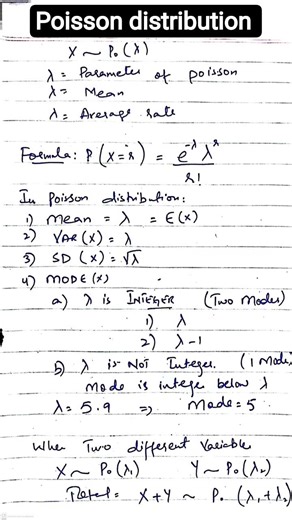 Poisson distribution
X ~ Po(λ)
λ = Parameter of poisson
λ = Mean
λ = Average rate
Formula: P(X=r) = e^-λ λ^r / r!
In Poisson distribution:
1) Mean = λ = E(x)
2) VAR(X) = λ
3) SD(X) = √λ
4) MODE(x)
a) λ is INTEGER (Two Modes)
1) λ
2) λ-1
b) λ is Not Integer. (1 Mode)
Mode is intege below λ
λ = 5.9 => Mode = 5
When Two different Variable
X ~ Po(λ1) Y ~ Po(λ2)
X+Y ~ Po(λ1+λ2)